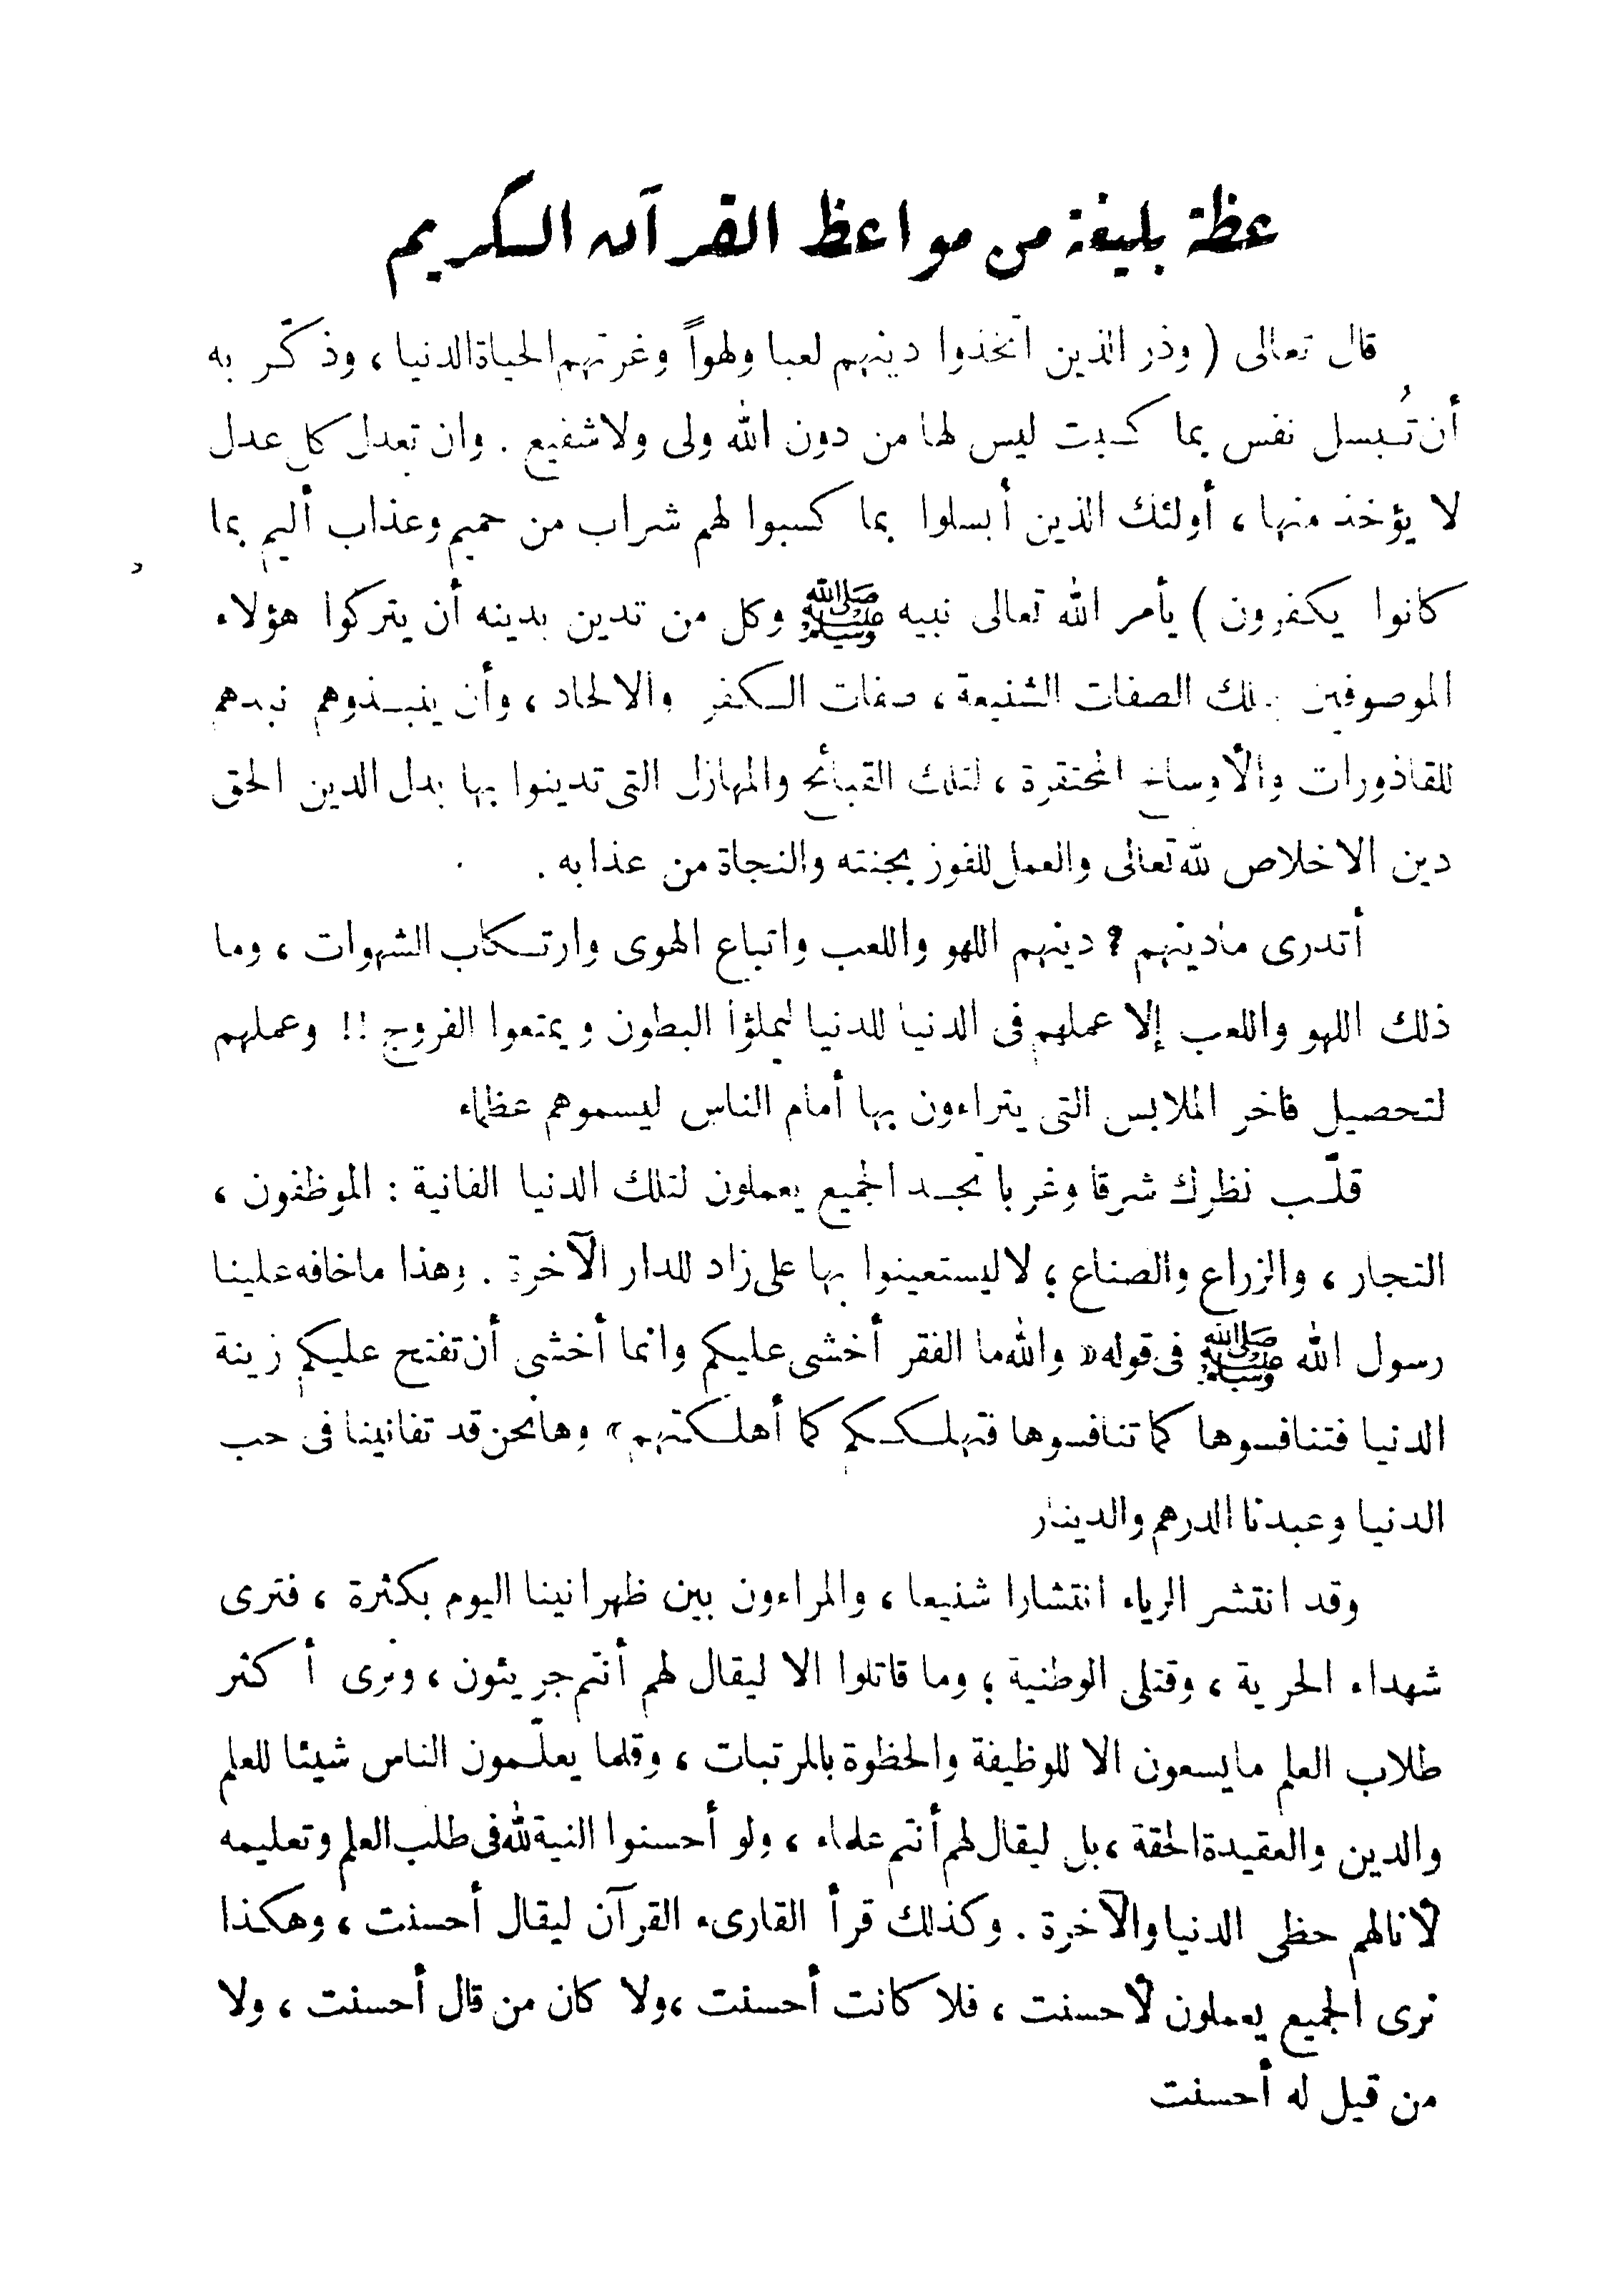 عظة بليغة من مواعظ القرآن الكريم
قال تعالى ( وذر الذين اتخذوا دينهم لعبا ولهواً وغرتهم الحياة الدنيا ، وذكّر به
أن تُبسل نفس بما كسبت ليس لها من دون الله ولى ولا شفيع . وان تعدل كل عدل
لا يؤخذ منها ، أولئك الذين أبسلوا بما كسبوا لهم شراب من حميم وعذاب أليم بما
كانوا يكفرون ) يأمر الله تعالى نبيه ﷺ وكل من تدين بدينه أن يتركوا هؤلاء
الموصوفين بتلك الصفات الشنيعة ، صفات الكفر والالحاد ، وأن ينبذوهم نبذهم
للقاذورات والأوساخ المحتقرة ، لتلك القبائح والمهازل التى تدينوا بها بدل الدين الحق
دين الاخلاص لله تعالى والعمل للفوز بجنته والنجاة من عذابه .
أتدرى ما دينهم ؟ دينهم اللهو واللعب واتباع الهوى وارتكاب الشهوات ، وما
ذلك اللهو واللعب إلا عملهم فى الدنيا للدنيا ليملؤا البطون ويمتعوا الفروج !! وعملهم
لتحصيل فاخر الملابس التى يتراءون بها أمام الناس ليسموهم عظماء
قلّب نظرك شرقا وغربا تجد الجميع يعملون لتلك الدنيا الفانية : الموظفون ،
التجار ، والزراع والصناع ؛ لا ليستعينوا بها على زاد للدار الآخرة . وهذا ما خافه علينا
رسول الله ﷺ فى قوله « والله ما الفقر أخشى عليكم وانما أخشى أن تفتح عليكم زينة
الدنيا فتنافسوها كما تنافسوها فتهلككم كما أهلكتهم » وها نحن قد تفانينا فى حب
الدنيا وعبدنا الدرهم والدينار
وقد انتشر الرياء انتشارا شنيعا ، والمراءون بين ظهرانينا اليوم بكثرة ، فترى
شهداء الحرية ، وقتلى الوطنية ؛ وما قاتلوا الا ليقال لهم أنتم جريئون ، وترى أكثر
طلاب العلم ما يسعون الا للوظيفة والحظوة بالمرتبات ، وقلما يعلّمون الناس شيئا للعلم
والدين والعقيدة الحقة ، بل ليقال لهم أنتم علماء ، ولو أحسنوا النية لله فى طلب العلم وتعليمه
لأنالهم حظى الدنيا والآخرة . وكذلك قرأ القارىء القرآن ليقال أحسنت ، وهكذا
ترى الجميع يعملون لأحسنت ، فلا كانت أحسنت ، ولا كان من قال أحسنت ، ولا
من قيل له أحسنت